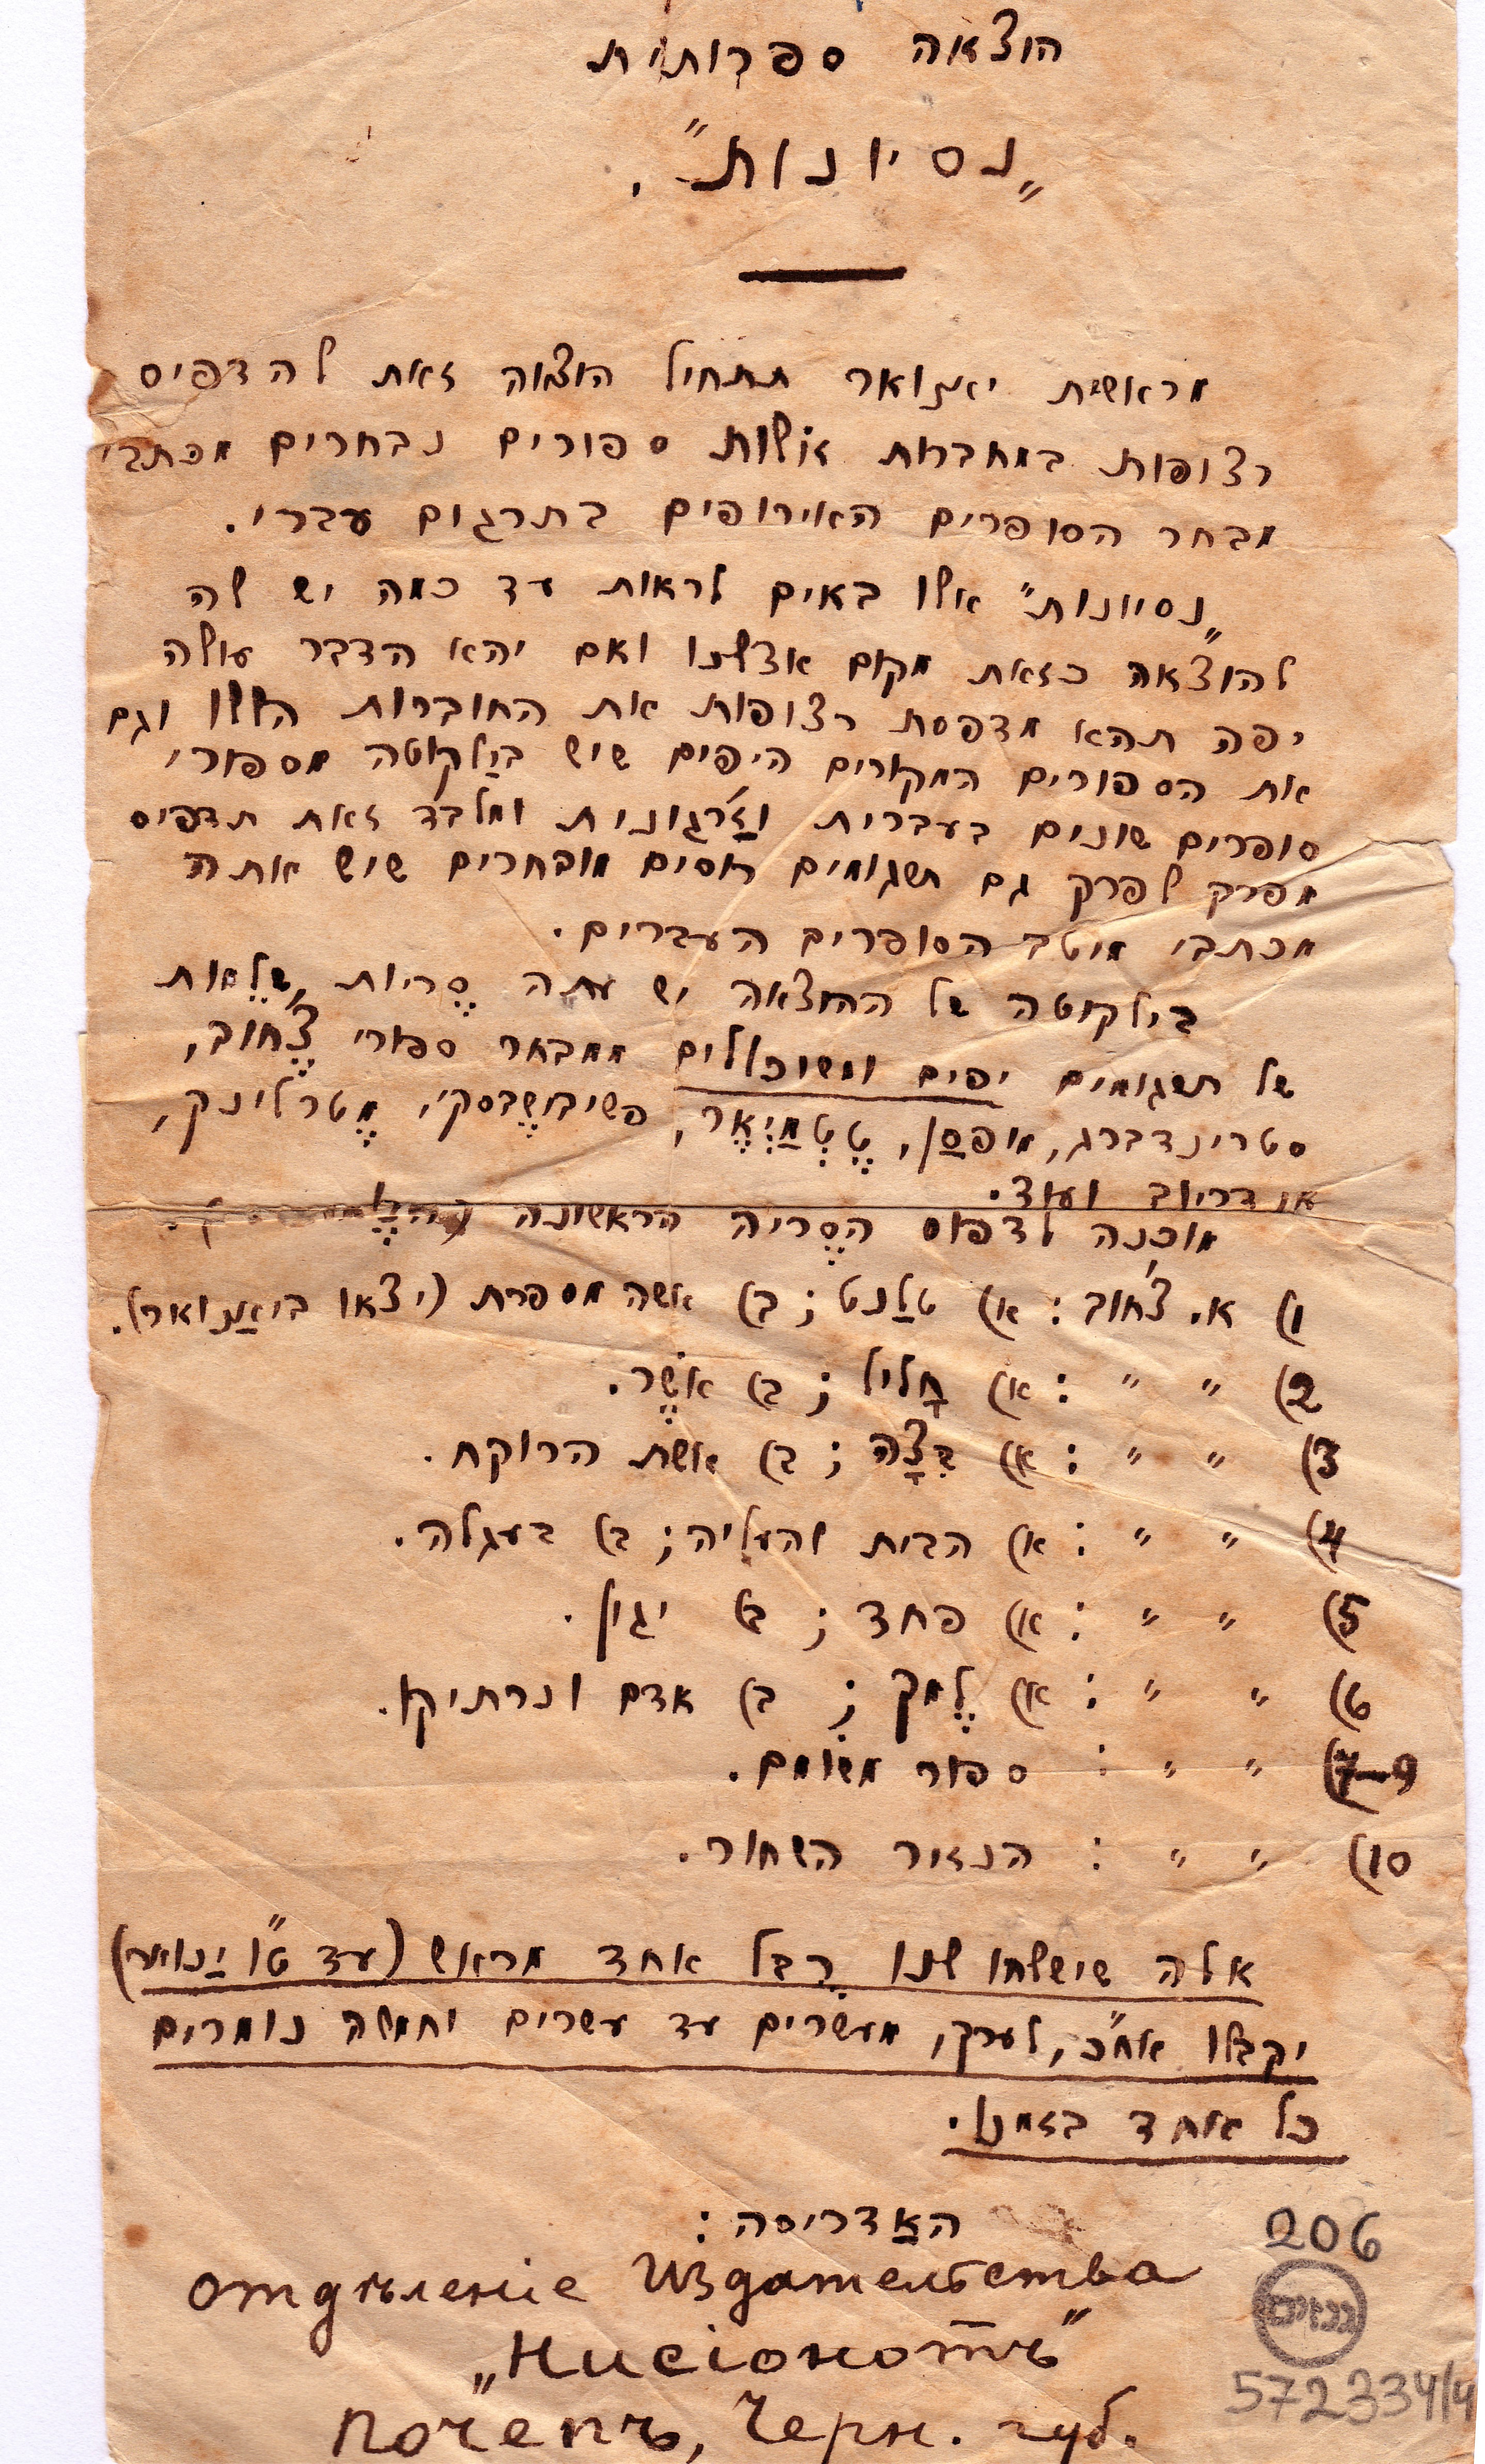 הוצאה ספרותית
„נסיונות״.
מראשית יאַנואר תתחיל הוצאה זאת להדפיס
רצופות במחברות זולות ספורים נבחרים מכתבי
מבחר הסופרים האירופים בתרגום עברי.
„נסיונות״ אלו באים לראות עד כמה יש לה
להוצאה כזאת מקום אצלנו ואם יהא הדבר עולה
יפה תהא מדפסת רצופות את החוברות הללו וגם
את הספורים המקורים היפים שיש בילַקוטה מספורי
סופרים שונים בעברית וזַ׳רגונית ומלבד זאת תדפיס
מפרק לפרק גם תרגומים רוסים מובחרים שיש אתה
מכתבי מיטב הסופרים העברים.
בילקוטה של ההוצאה יש עתה סֶריות שלֵמות
של תרגומים יפים ומשוכללים ממבחר ספורי צֶ׳חוב,
סטרינדברג, מופסַן, טֶטְמַיְאֶר, פשיבושֶבסקי, מֶטרלינק,
אנדריוב ועוד.
מוכנה לדפוס הסֶריה הראשונה
1) א. צ׳חוב: א) טלַנט; ב) אשה מספרת (יצאו ביאַנואר).
2) ״ ״ : א) חָליל; ב) אשֶׁר.
3) ״ ״ : א) בִּצָה; ב) אשת הרוקח.
4) ״ ״ : א) הבית והעליה; ב) בעגלה.
5) ״ ״ : א) פחד; ב) יגון.
6) ״ ״ : א) לֶמך; ב) אדם ונרתיקו.
7–9) ״ ״ : ספור משומם.
10) ״ ״ : הנזיר השחור.
אלה שישלחו לנו רֻבל אחד מראש (עד ט״ו יַנואר)
יקבלו אח״כ, לערך, מעשרים עד עשרים וחמשה נומרים
כל אחד בזמנו.
האַדריסה:
206
Отдѣленіе Издательства
„Нисіонотъ“
גנזים
572334/4
Почепъ, Черн. губ.